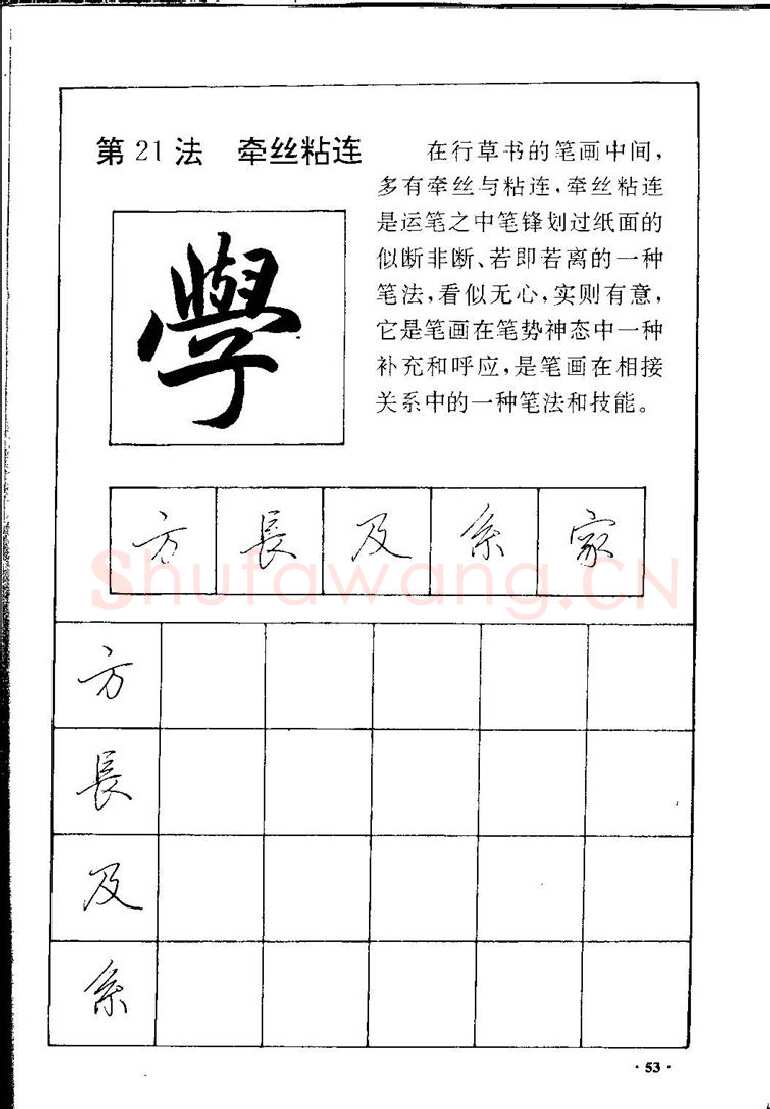 第21法 牵丝粘连
在行草书的笔画中间，
多有牵丝与粘连，牵丝粘连
是运笔之中笔锋划过纸面的
似断非断、若即若离的一种
笔法，看似无心，实则有意，
它是笔画在笔势神态中一种
补充和呼应，是笔画在相接
关系中的一种笔法和技能。
學
方 長 及 系 家
Shufawang.CN
方
長
及
系
·53·